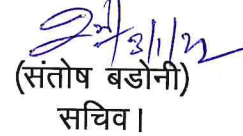 3/1/22
(संतोष बडोनी)
सचिव।